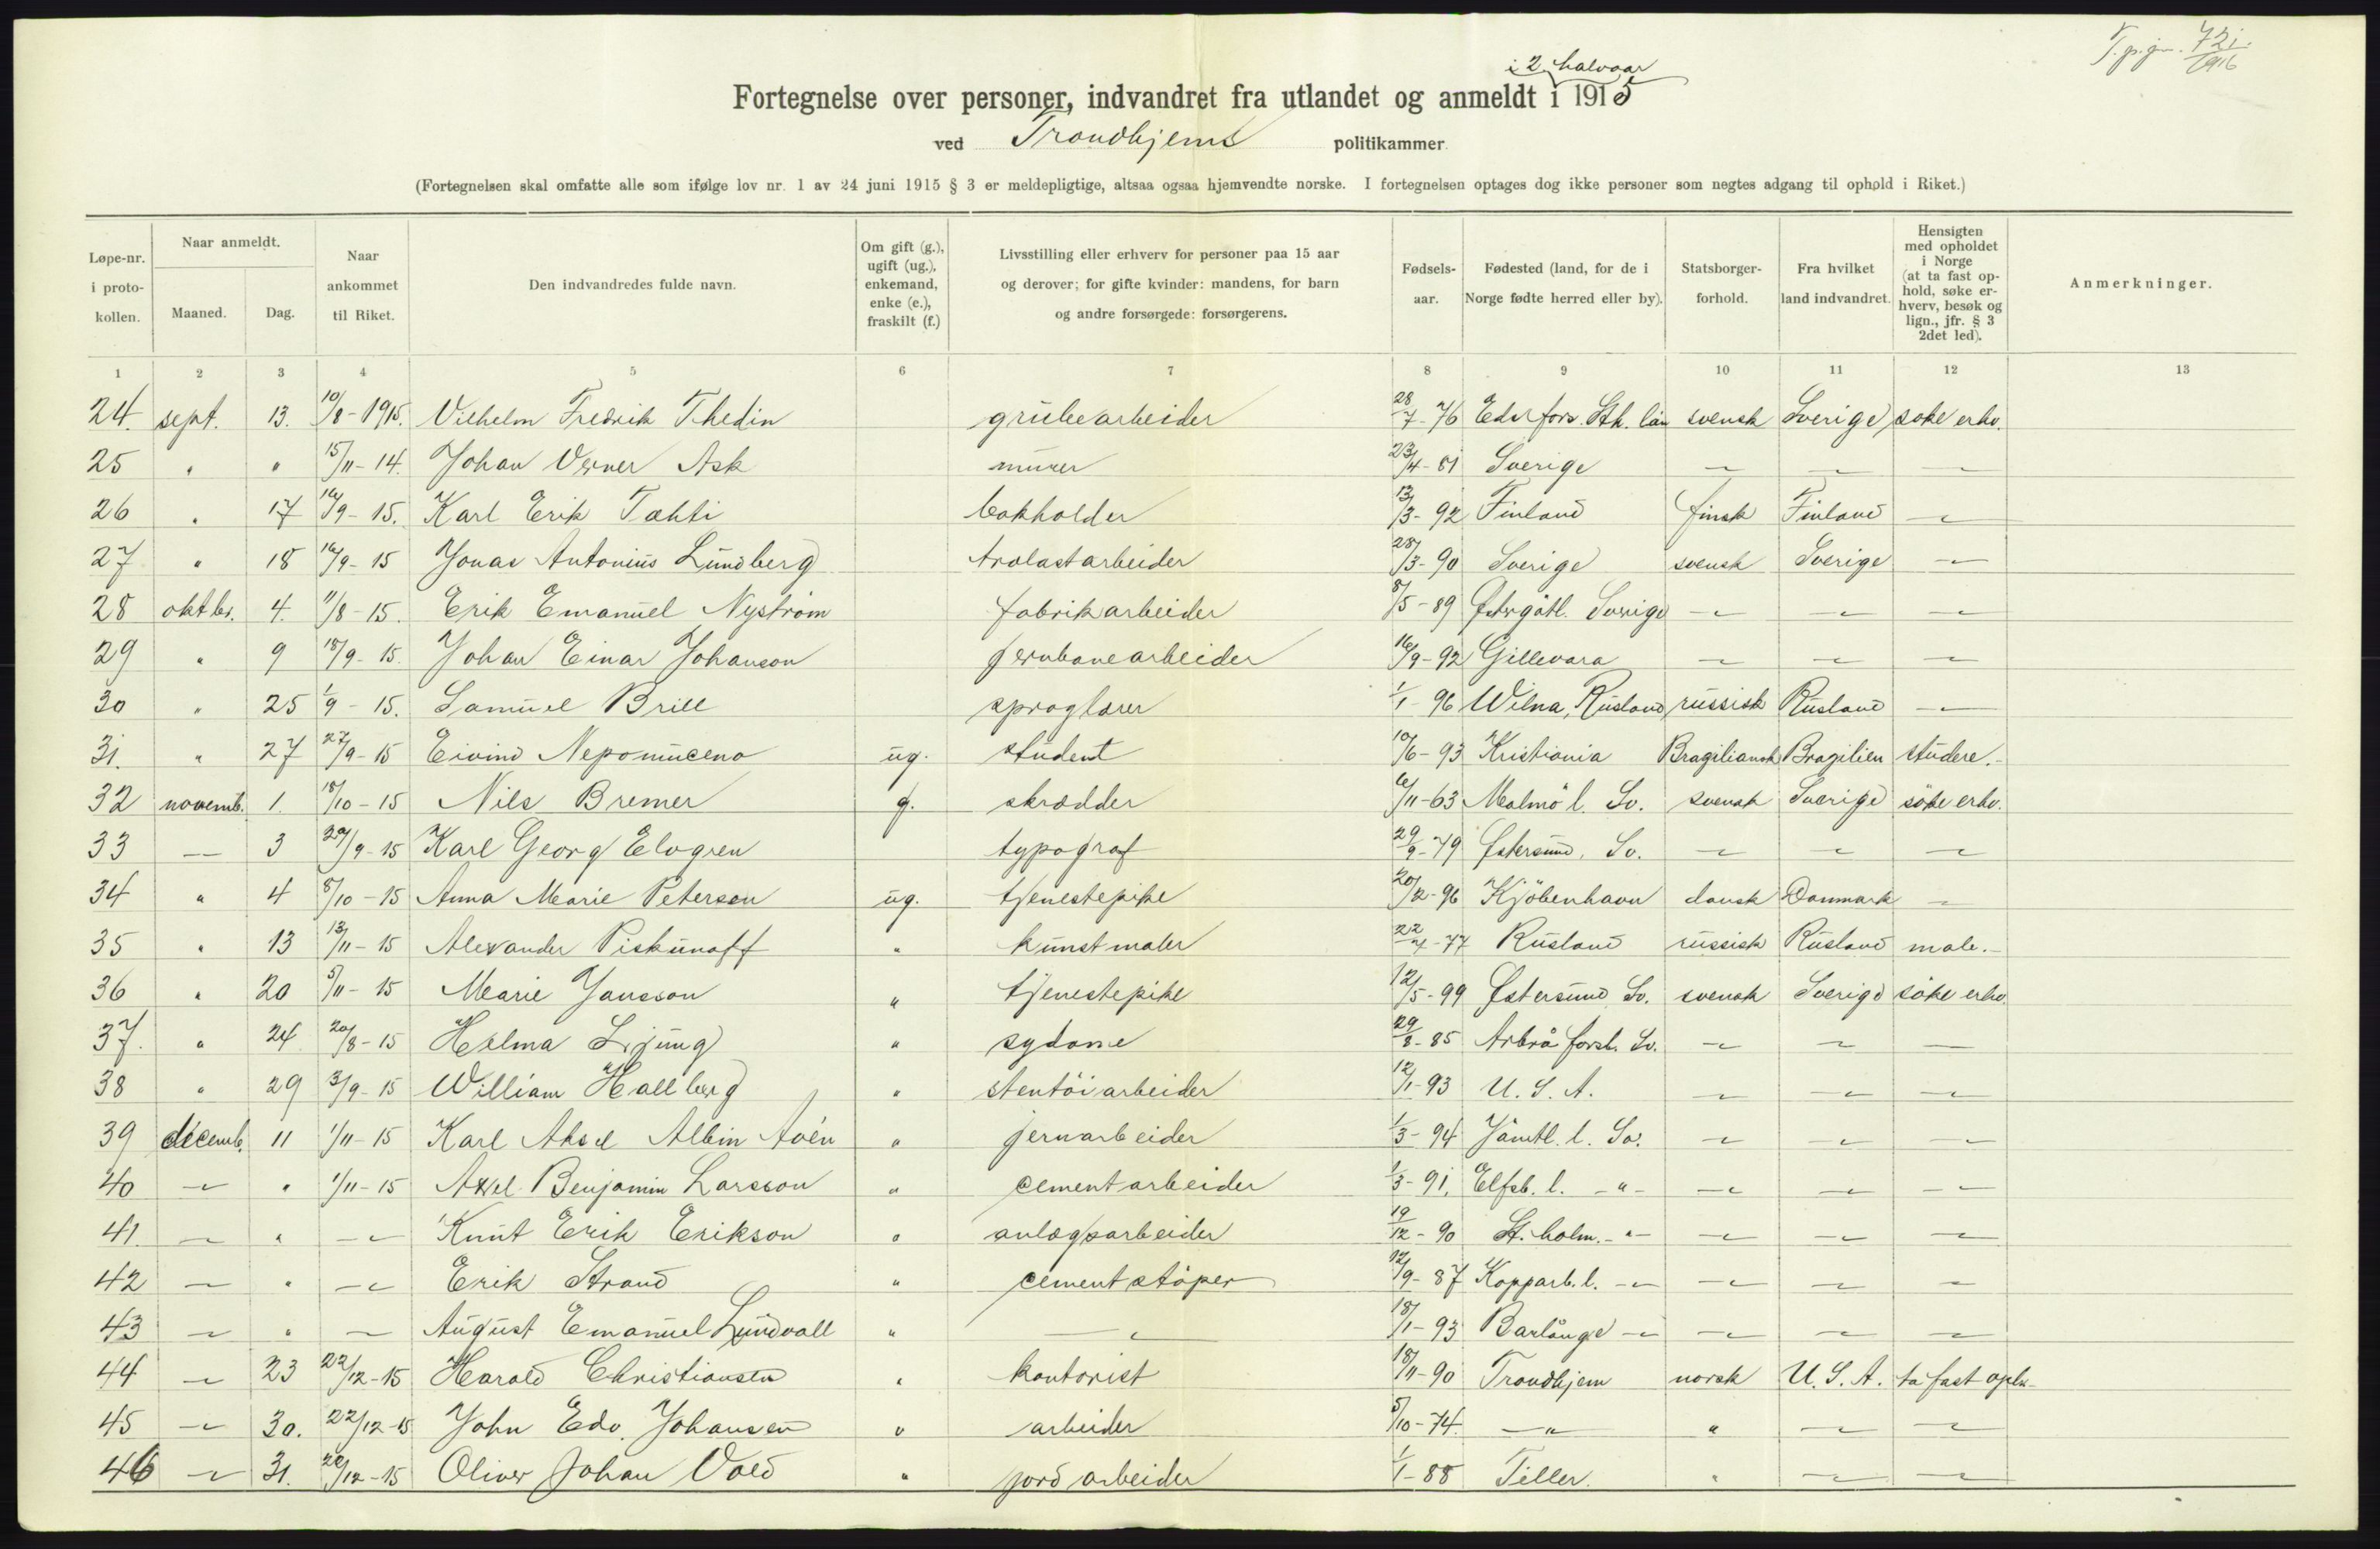 T. p. j.nr. 721/1916
i 2. halvaar
Fortegnelse over personer, indvandret fra utlandet og anmeldt i 1915
ved Trondhjems politikammer.
(Fortegnelsen skal omfatte alle som ifølge lov nr. 1 av 24 juni 1915 § 3 er meldepligtige, altsaa ogsaa hjemvendte norske. I fortegnelsen optages dog ikke personer som negtes adgang til ophold i Riket.)
Løpe-nr. i proto-kollen. | Naar anmeldt. Maaned. | Dag. | Naar ankommet til Riket. | Den indvandredes fulde navn. | Om gift (g.), ugift (ug.), enkemand, enke (e.), fraskilt (f.) | Livsstilling eller erhverv for personer paa 15 aar og derover; for gifte kvinder: mandens, for barn og andre forsørgede: forsørgerens. | Fødsels-aar. | Fødested (land, for de i Norge fødte herred eller by). | Statsborger-forhold. | Fra hvilket land indvandret. | Hensigten med opholdet i Norge (at ta fast op-hold, søke er-hverv, besøk og lign., jfr. § 3 2det led). | Anmerkninger.
1 2 3 4 5 6 7 8 9 10 11 12 13
24. sept. 13. 10/8-1915. Vilhelm Fredrik Thedin grubearbeider 28/7-76 Edefors. län svensk Sverige søke erhv.
25 " " 15/11-14. Johan Verner Ask murer 23/4-81 Sverige — — —
26 " 17 16/9-15. Karl Erik Tahti bokholder 13/3-92 Finland finsk Finland —
27 " 18 16/9-15 Jonas Antonius Lundberg trælastarbeider 28/3-90 Sverige svensk Sverige —
28 oktbr. 4. 11/8-15. Erik Emanuel Nyström fabrikarbeider 8/5-89 Østrgötl. Sverige — — —
29 " 9 18/9-15. Johan Einar Johanson jernbanearbeider 16/9-92 Gillevara — — —
30 " 25 1/9-15. Samuel Brill sproglærer 1/1-96 Wilna, Rusland russisk Rusland —
31. " 27 27/9-15 Eivind Nepomuceno ug. student 10/6-93 Kristiania Braziliansk Brazilien studere.
32 novemb. 1. 18/10-15 Nils Bremer g. skrædder 6/11-63 Malmö l. Sv. svensk Sverige söke erhv.
33 — 3 29/9-15 Karl Georg Elvgren typograf 29/9-79 Østersund, Sv. — — —
34 " 4 8/10-15 Anna Marie Petersen ug. tjenestepike 20/2-96 Kjöbenhavn dansk Danmark —
35 " 13 13/11-15 Alexander Piskunoff " kunstmaler 22/4-77 Rusland russisk Rusland male.
36 " 20 5/11-15 Marie Jansson " tjenestepike 12/5-99 Østersund Sv. svensk Sverige söke erhv.
37. " 24 20/8-15 Helma Ljung " sydame 29/8-85 Arbrå forsl. Sv. — — —
38 " 29 3/9-15 William Hallberg " stentöiarbeider 12/1-93 U.S.A. — — —
39 decemb. 11 1/11-15 Karl Aksel Albin Avén " jernarbeider 1/3-94 Jämtl. l. Sv. — — —
40 — " 1/11-15 Axel Benjamin Larsson " cementarbeider 1/3-91. Elfsb. l. -"- — — —
41. — " — Knut Erik Erikson " anlægsarbeider 19/12-90 St.holm. -"- — — —
42 — " — Erik Strand " cementstöper 12/9-87 Kopparb. l. — — — —
43 — " — August Emanuel Lundvall " — 18/1-93 Barlånge — — — —
44 — 23 22/12-15 Harald Christiansen " kontorist 18/11-90 Trondhjem norsk U.S.A. ta fast oph.
45 — 30. 22/12-15 John Edv. Johansen " arbeider 5/10-74. -"- " — —
46 — 31. 22/12-15 Oliver Johan Vold " jordarbeider 1/1-88 Tiller. " — —